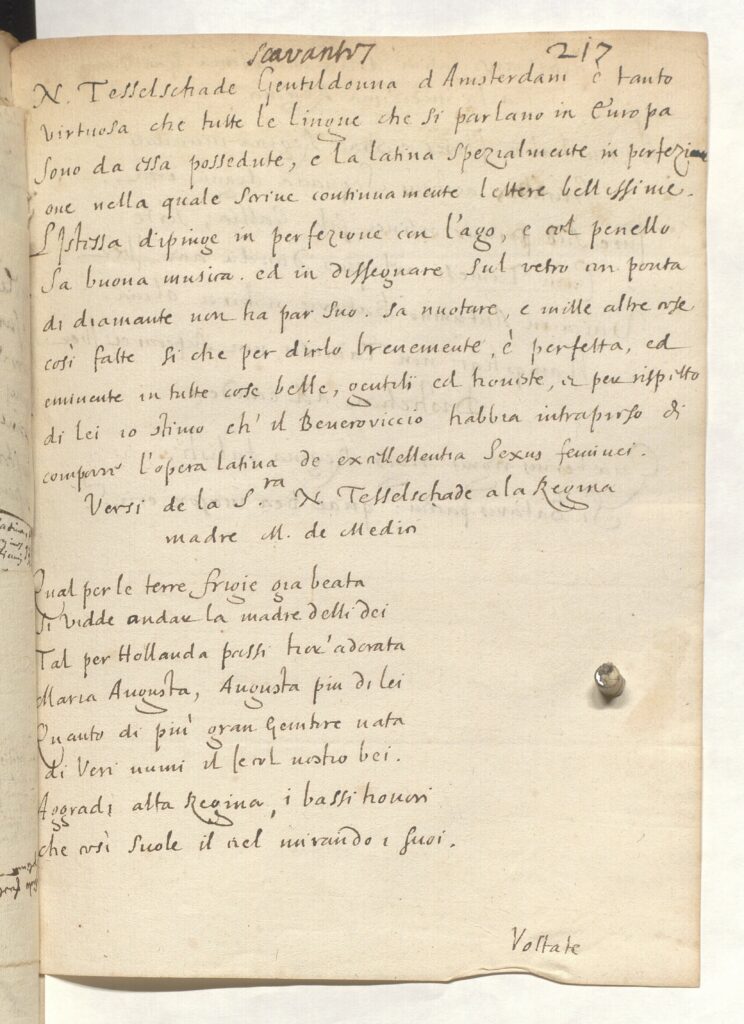 scavantus 217
N. Tesselschade Gentildonna d'Amsterdam è tanto
virtuosa che tutte le lingue che si parlano in Europa
sono da essa possedute, e la latina spezialmente in perfezi
one nella quale scrive continuamente lettere bellissime.
L'istessa dipinge in perfezione con l'ago, e col penello
sa buona musica. ed in dissegnare sul vetro con ponta
di diamante non ha par suo. sa nuotare, e mille altre cose
così fatte si che per dirlo brevemente, è perfetta, ed
eminente in tutte cose belle, gentili ed honeste, et per rispetto
di lei io stimo ch' il Beveroviccio habbia intrapreso di
comporre l'opera latina de excellentia Sexus feminei.
Versi de la S.ra N. Tesselschade a la Regina
madre M. de Medici
Qual per le terre frigie gia beata
si vidde andar la madre delli dei
Tal per Hollanda passi hor' adorata
Maria Augusta, Augusta piu di lei
Quanto di più gran Genitore nata
di veri numi il secol nostro bei.
Aggradi alta Regina, i bassi honori
che così suole il ciel mirando i suoi.
Voltate